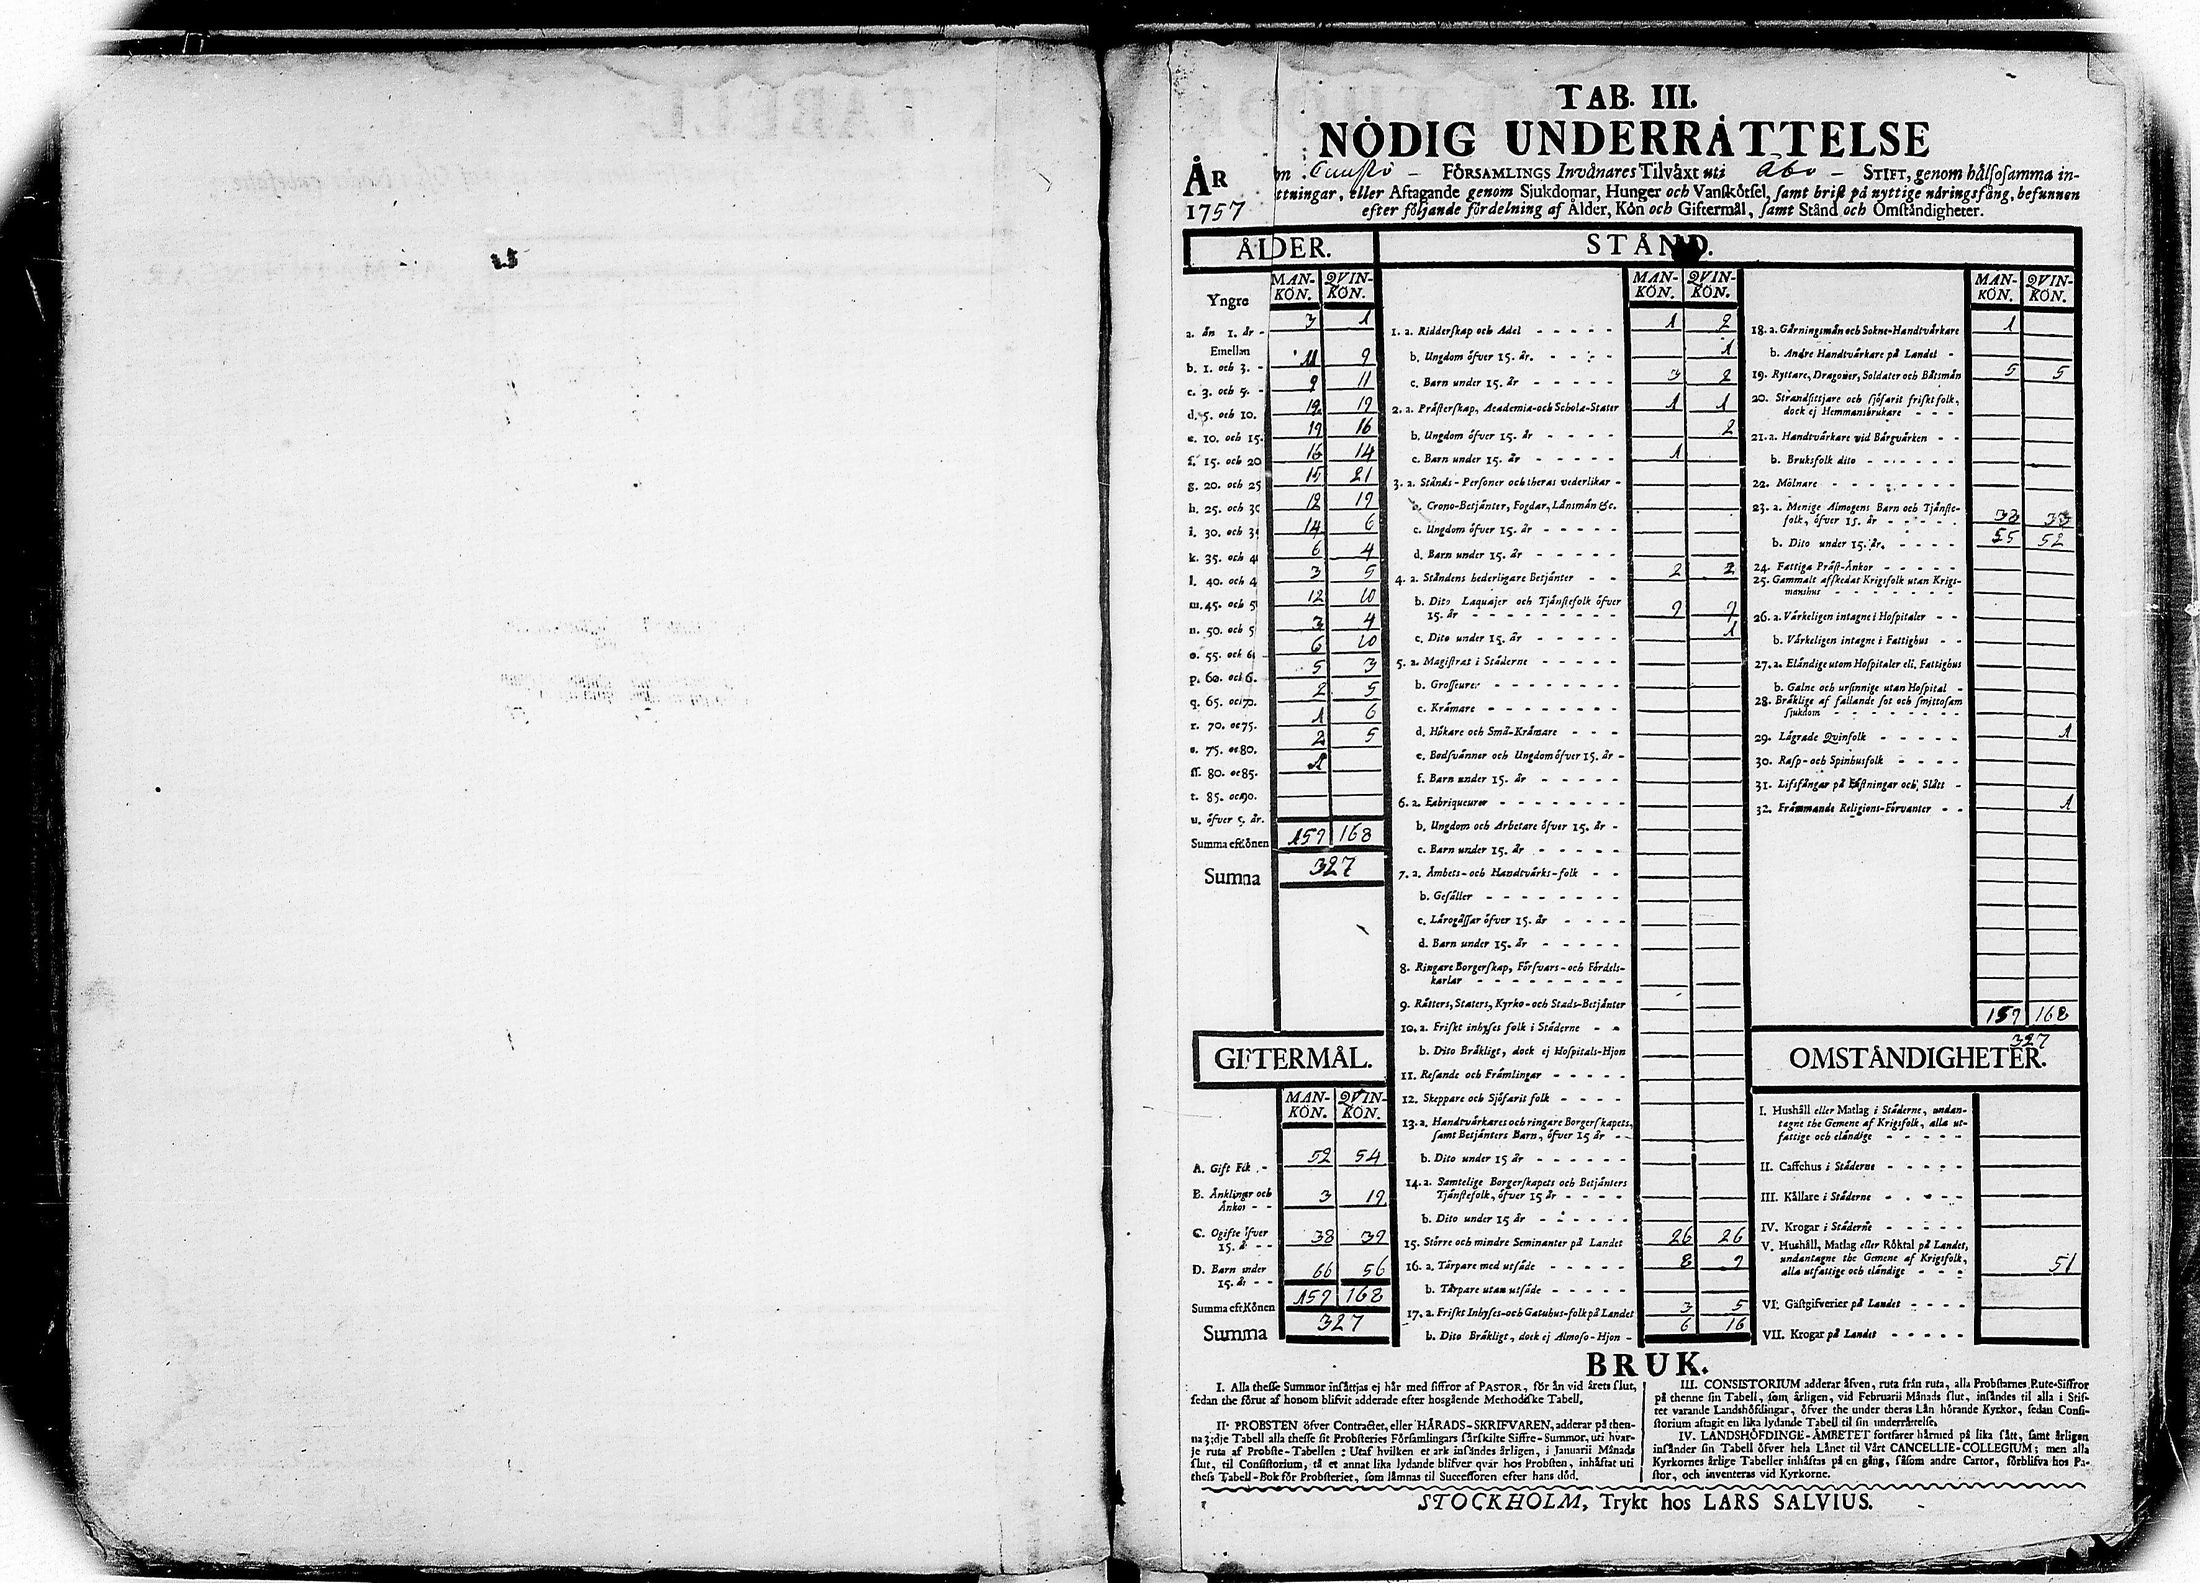 TAB. III.
NÖDIG UNDERRÄTTELSE
ÅR 1757
FÖRSAMLINGS Invånares Tilväxt uti Åbo – STIFT, genom hälsosamma in-
ttningar, eller Aftagande genom Sjukdomar, Hunger och Vanskötsel, samt brist på nyttige näringsfång, befunnen
efter följande fördelning af Ålder, Kön och Giftermål, samt Stånd och Omständigheter.
ÅLDER.
MAN-KÖN. QVIN-KÖN.
Yngre
a. än 1. år - 3 1
Emellan
b. 1. och 3. - 11 9
c. 3. och 5. - 9 11
d. 5. och 10. 19 19
e. 10. och 15. 19 16
f. 15. och 20 16 14
g. 20. och 25 15 21
h. 25. och 30 12 19
i. 30. och 35 14 6
k. 35. och 4 6 4
l. 40. och 4 3 5
m. 45. och 5 12 10
n. 50. och 5 3 4
o. 55. och 6 6 10
p. 60. och 6. 5 3
q. 65. och 70. 2 5
r. 70. oc 75. 1 6
s. 75. oc 80. 2 5
ss. 80. oc 85. 1
t. 85. oc 90.
u. öfver 9. år.
Summa eft. Könen 159 168
Summa 327
GIFTERMÅL.
MAN-KÖN. QVIN-KÖN.
A. Gift Folk - 52 54
B. Änklingar och Änkor - - 3 19
C. Ogifte öfver 15. år - - 38 39
D. Barn under 15. år - - 66 56
Summa eft. Könen 159 168
Summa 327
STÅND.
MAN-KÖN. QVIN-KÖN.
1. a. Ridderskap och Adel - - - - - 1 2
b. Ungdom öfver 15. år. - - - - 1
c. Barn under 15. år - - - - - 3 2
2. a. Prästerskap, Academia- och Schola-Stater 1 1
b. Ungdom öfver 15. år - - - - 2
c. Barn under 15. år - - - - - 1
3. a. Stånds-Personer och theras vederlikar -
b. Crono-Betjänter, Fogdar, Länsmän &c.
c. Ungdom öfver 15. år - - - - -
d. Barn under 15. år - - - - -
4. a. Ståndens hederligare Betjänter - - 2 2
b. Dito Laquajer och Tjänstefolk öfver
15. år - - - - - - - - - 9 9
c. Dito under 15. år - - - - - 1
5. a. Magistrat i Städerne - - - - -
b. Grosseurer - - - - - - - -
c. Krämare - - - - - - - -
d. Hökare och Små-Krämare - - -
e. Bodsvänner och Ungdom öfver 15. år -
f. Barn under 15. år - - - - -
6. a. Fabriqueurer - - - - - - - -
b. Ungdom och Arbetare öfver 15. år -
c. Barn under 15. år - - - - -
7. a. Ämbets- och Handtvärks-folk - -
b. Gesäller - - - - - - - -
c. Lärogåssar öfver 15. år - - - -
d. Barn under 15. år - - - - -
8. Ringare Borgerskap, Försvars- och Fördels-
karlar - - - - - - - - -
9. Rätters, Staters, Kyrko- och Stads-Betjänter
10. a. Friskt inhyses folk i Städerne - -
b. Dito Bräkligt, dock ej Hospitals-Hjon
11. Resande och Främlingar - - - - -
12. Skeppare och Sjöfarit folk - - - -
13. a. Handtvärkares och ringare Borgerskapets,
samt Betjänters Barn, öfver 15 år - -
b. Dito under 15 år - - - - - -
14. a. Samtelige Borgerskapets och Betjänters
Tjänstefolk, öfver 15 år - - - -
b. Dito under 15 år - - - - - -
15. Större och mindre Seminanter på Landet 26 26
16. a. Tårpare med utsäde - - - - - 8 9
b. Tårpare utan utsäde - - - - -
17. a. Friskt Inhyses- och Gatuhus-folk på Landet 3 5
b. Dito Bräkligt, dock ej Almoso-Hjon - 6 16
MAN-KÖN. QVIN-KÖN.
18. a. Gärningsmän och Sokne-Handtvärkare 1
b. Andre Handtvärkare på Landet -
19. Ryttare, Dragoner, Soldater och Båtsmän 5 5
20. Strandsittjare och sjöfarit friskt folk,
dock ej Hemmansbrukare - - -
21. a. Handtvärkare vid Bärgvärken - -
b. Bruksfolk dito - - - - - -
22. Mölnare - - - - - - - -
23. a. Menige Almogens Barn och Tjänste-
folk, öfver 15. år - - - - - 38 33
b. Dito under 15. år. - - - - 55 52
24. Fattiga Präst-Änkor - - - - -
25. Gammalt afskedat Krigsfolk utan Krigs-
manshus - - - - - - - -
26. a. Värkeligen intagne i Hospitaler - -
b. Värkeligen intagne i Fattighus - -
27. a. Eländige utom Hospitaler ell. Fattighus
b. Galne och ursinnige utan Hospital -
28. Bräklige af fallande sot och smittosam
sjukdom - - - - - - - -
29. Lägrade Qvinfolk - - - - - 1
30. Rasp- och Spinhusfolk - - - -
31. Lifsfångar på Fästningar och Slått -
32. Främmande Religions-Förvanter - - 1
159 168
327
OMSTÄNDIGHETER.
I. Hushåll eller Matlag i Städerne, undan-
tagne the Gemene af Krigsfolk, alla ut-
fattige och eländige - - - - -
II. Caffehus i Städerne - - - - -
III. Källare i Städerne - - - - -
IV. Krogar i Städerne - - - - -
V. Hushåll, Matlag eller Röktal på Landet,
undantagne the Gemene af Krigsfolk,
alla utfattige och eländige - - - 51
VI. Gästgifverier på Landet - - - -
VII. Krogar på Landet - - - - -
BRUK.
I. Alla thesse Summor insättjas ej här med siffror af PASTOR, för än vid årets slut,
sedan the förut af honom blifvit adderade efter hosgående Methodiske Tabell.
II. PROBSTEN öfver Contractet, eller HÄRADS-SKRIFVAREN, adderar på then-
na 3;dje Tabell alla thesse sit Probsteries Församlingars särskilte Siffre-Summor, uti hvar-
je ruta af Probste-Tabellen: Utaf hvilken et ark insändes årligen, i Januarii Månads
slut, til Consistorium, tå et annat lika lydande blifver qvar hos Probsten, inhäftat uti
thess Tabell-Bok för Probsteriet, som lämnas til Successoren efter hans död.
III. CONSISTORIUM adderar äfven, ruta från ruta, alla Probstarnes Rute-Siffror
på thenne sin Tabell, som årligen, vid Februarii Månads slut, insändes til alla i Stif-
tet varande Landshöfdingar, öfver the under theras Län hörande Kyrkor, sedan Consi-
storium aftagit en lika lydande Tabell til sin underrättelse.
IV. LANDSHÖFDINGE-ÄMBETET fortfarer härmed på lika sätt, samt årligen
insänder sin Tabell öfver hela Länet til Vårt CANCELLIE-COLLEGIUM; men alla
Kyrkornes årlige Tabeller inhäftas på en gång, såsom andre Cartor, förblifva hos Pa-
stor, och inventeras vid Kyrkorne.
STOCKHOLM, Trykt hos LARS SALVIUS.